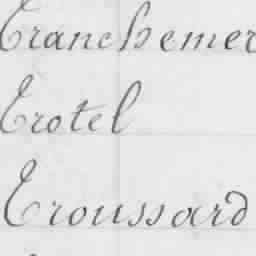 Tranchemer
Trotel
Troussard